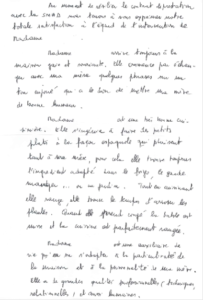 Au moment de résilier le contrat de prestation
avec la SMAD nous tenons à vous exprimer notre
totale satisfaction à l'égard de l'intervention de
Madame
Madame arrive toujours à la
maison gaie et souriante, elle commence par échan-
ger avec ma mère quelques phrases sur un
ton enjoué qui a le don de mettre ma mère
de bonne humeur.
Madame est une très bonne cui-
sinière. Elle s'ingénie à faire des petits
plats à la façon espagnole qui plaisent
tant à ma mère, pour cela elle trouve toujours
l'ingrédient adapté dans le frigo, le garde
manger... ou un placard. Tout en cuisinant
elle range, et trouve le temps d'arroser les
plantes. Quand elle prend congé la table est
mise et la cuisine est parfaitement rangée.
Madame est une auxiliaire de
vie qui a su s'adapter à la particularité de
la maison et à la personnalité de ma mère.
Elle a de grandes qualités professionnelles,
relationnelles, et humaines.